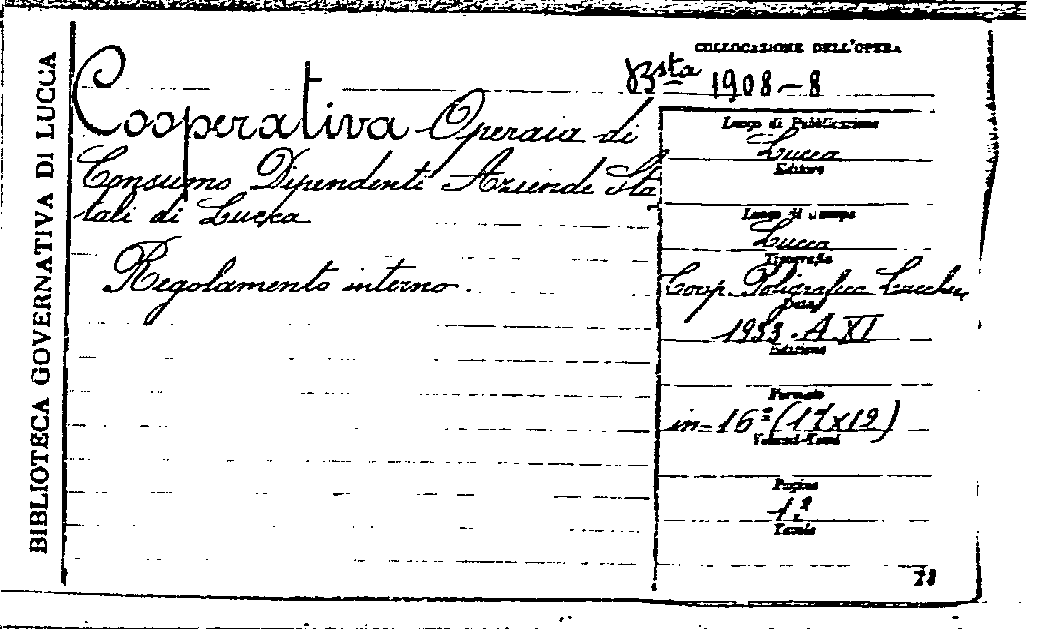 BIBLIOTECA GOVERNATIVA DI LUCCA
COLLOCAZIONE DELL'OPERA
Bsta 1908-8
Cooperativa Operaia di
Consumo Dipendenti Aziende Sta
tali di Lucca
Regolamento interno.
Luogo di Pubblicazione
Lucca
Editore
Luogo di Stampa
Lucca
Tipografia
Coop. Poligrafica Lucchese
Data
1933. A. XI
Edizione
Formato
in-16º (17x12)
Volumi-Tomi
Pagine
Tavole